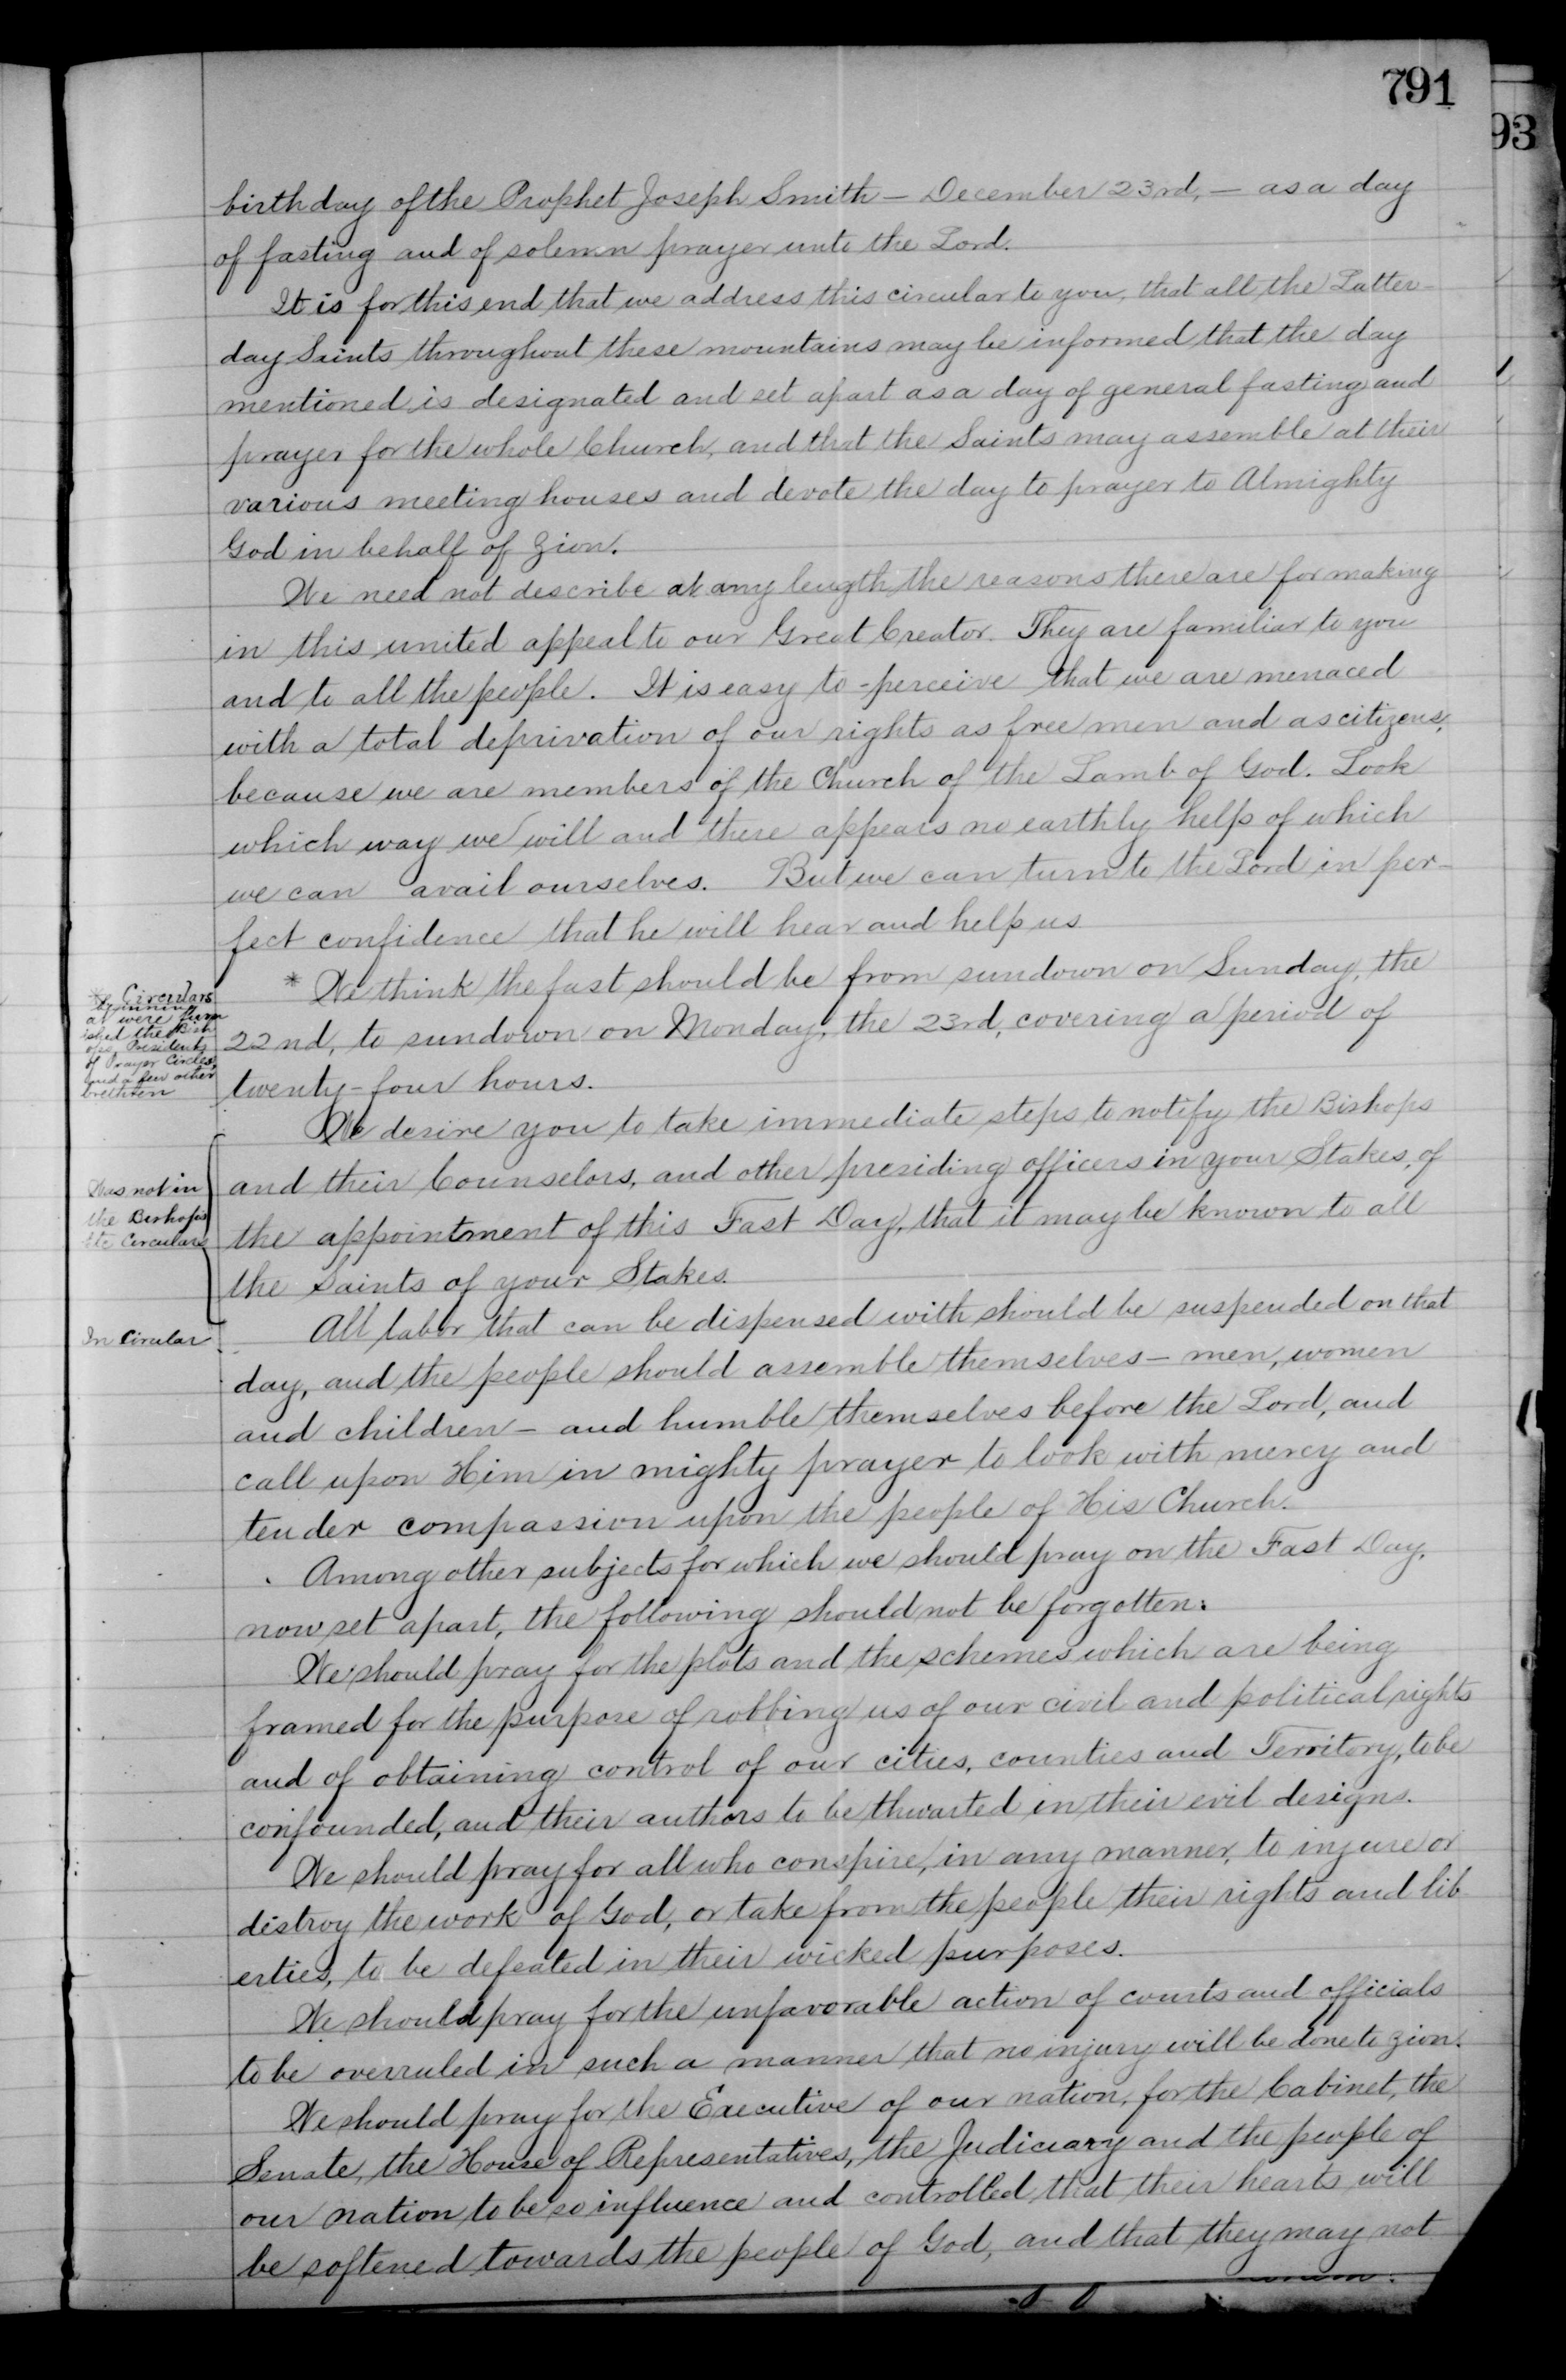 791
93
birthday of the Prophet Joseph Smith — December 23rd, — as a day
of fasting and of solemn prayer unto the Lord.
It is for this end that we address this circular to you, that all the Latter-
day Saints throughout these mountains may be informed that the day
mentioned is designated and set apart as a day of general fasting and
prayer for the whole Church, and that the Saints may assemble at their
various meeting houses and devote the day to prayer to Almighty
God in behalf of Zion.
We need not describe at any length the reasons there are for making
in this united appeal to our Great Creator. They are familiar to you
and to all the people. It is easy to perceive that we are menaced
with a total deprivation of our rights as free men and as citizens,
because we are members of the Church of the Lamb of God. Look
which way we will and there appears no earthly help of which
we can avail ourselves. But we can turn to the Lord in per-
fect confidence that he will hear and help us
* We think the fast should be from sundown on Sunday, the
22nd, to sundown on Monday, the 23rd, covering a period of
twenty-four hours.
* Circulars
beginning
at were furn
ished the Bish
ops Presidents
of Prayer Circles,
and a few other
brethren
We desire you to take immediate steps to notify the Bishops
and their Counselors, and other presiding officers in your Stakes, of
the appointment of this Fast Day, that it may be known to all
the Saints of your Stakes.
Was not in
the Bishops
etc Circulars
In Circular
All labor that can be dispensed with should be suspended on that
day, and the people should assemble themselves — men, women
and children — and humble themselves before the Lord, and
call upon Him in mighty prayer to look with mercy and
tender compassion upon the people of His Church.
Among other subjects for which we should pray on the Fast Day,
now set apart, the following should not be forgotten:
We should pray for the plots and the schemes which are being
framed for the purpose of robbing us of our civil and political rights
and of obtaining control of our cities, counties and Territory, to be
confounded, and their authors to be thwarted in their evil designs.
We should pray for all who conspire, in any manner, to injure or
distroy the work of God, or take from the people their rights and lib
erties, to be defeated in their wicked purposes.
We should pray for the unfavorable action of courts and officials
to be overruled in such a manner that no injury will be done to Zion.
We should pray for the Executive of our nation, for the Cabinet, the
Senate, the House of Representatives, the Judiciary and the people of
our nation to be so influence and controlled that their hearts will
be softened towards the people of God, and that they may not